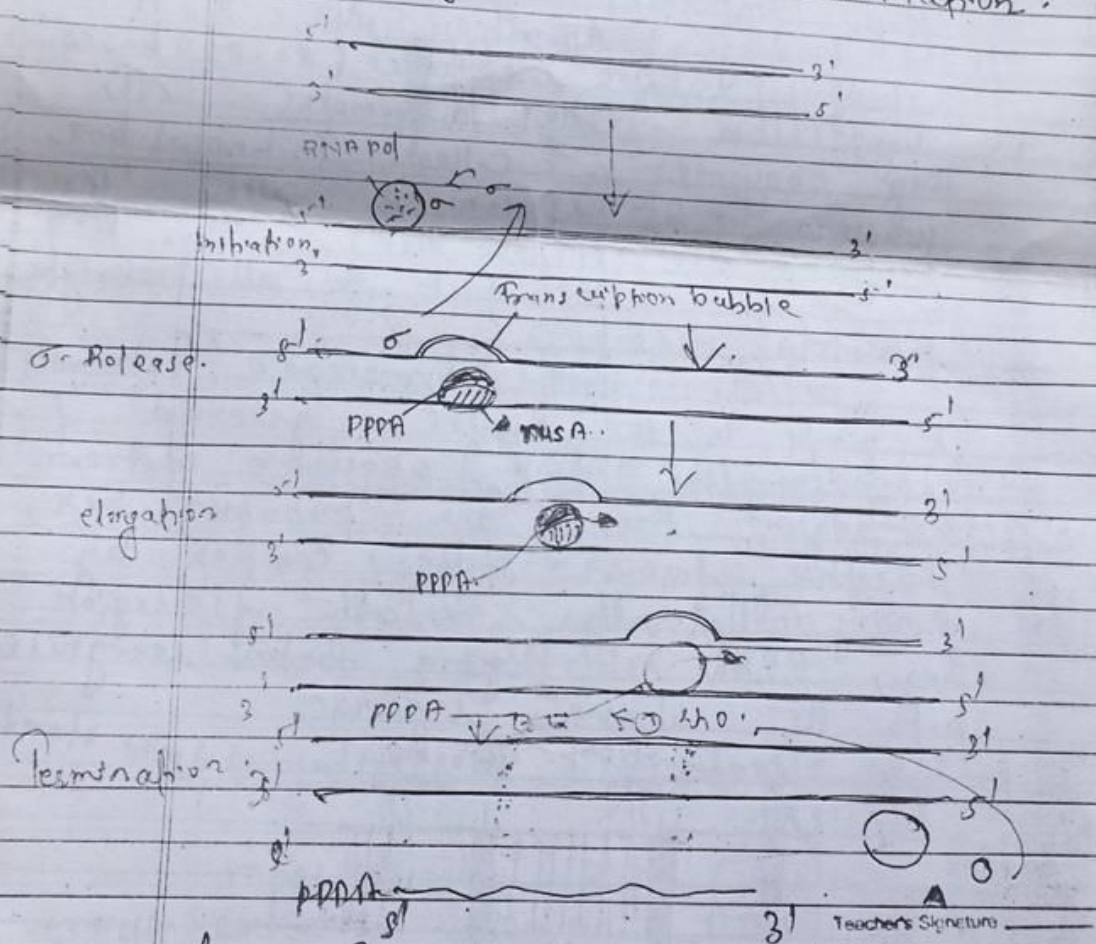 5' 3'
3' 5'
RNA pol
σ
σ
5'
Initiation, 3'
3' 5'
Transcription bubble
σ
σ-Release. 5' 3'
3' 5'
PPPA nusA..
5' 3'
elongation
3' 5'
PPPA.
5' 3'
3' 5'
PPPA rho.
5' 3'
Termination 3' 5'
PPPA
5' 3'
Teacher's Signature